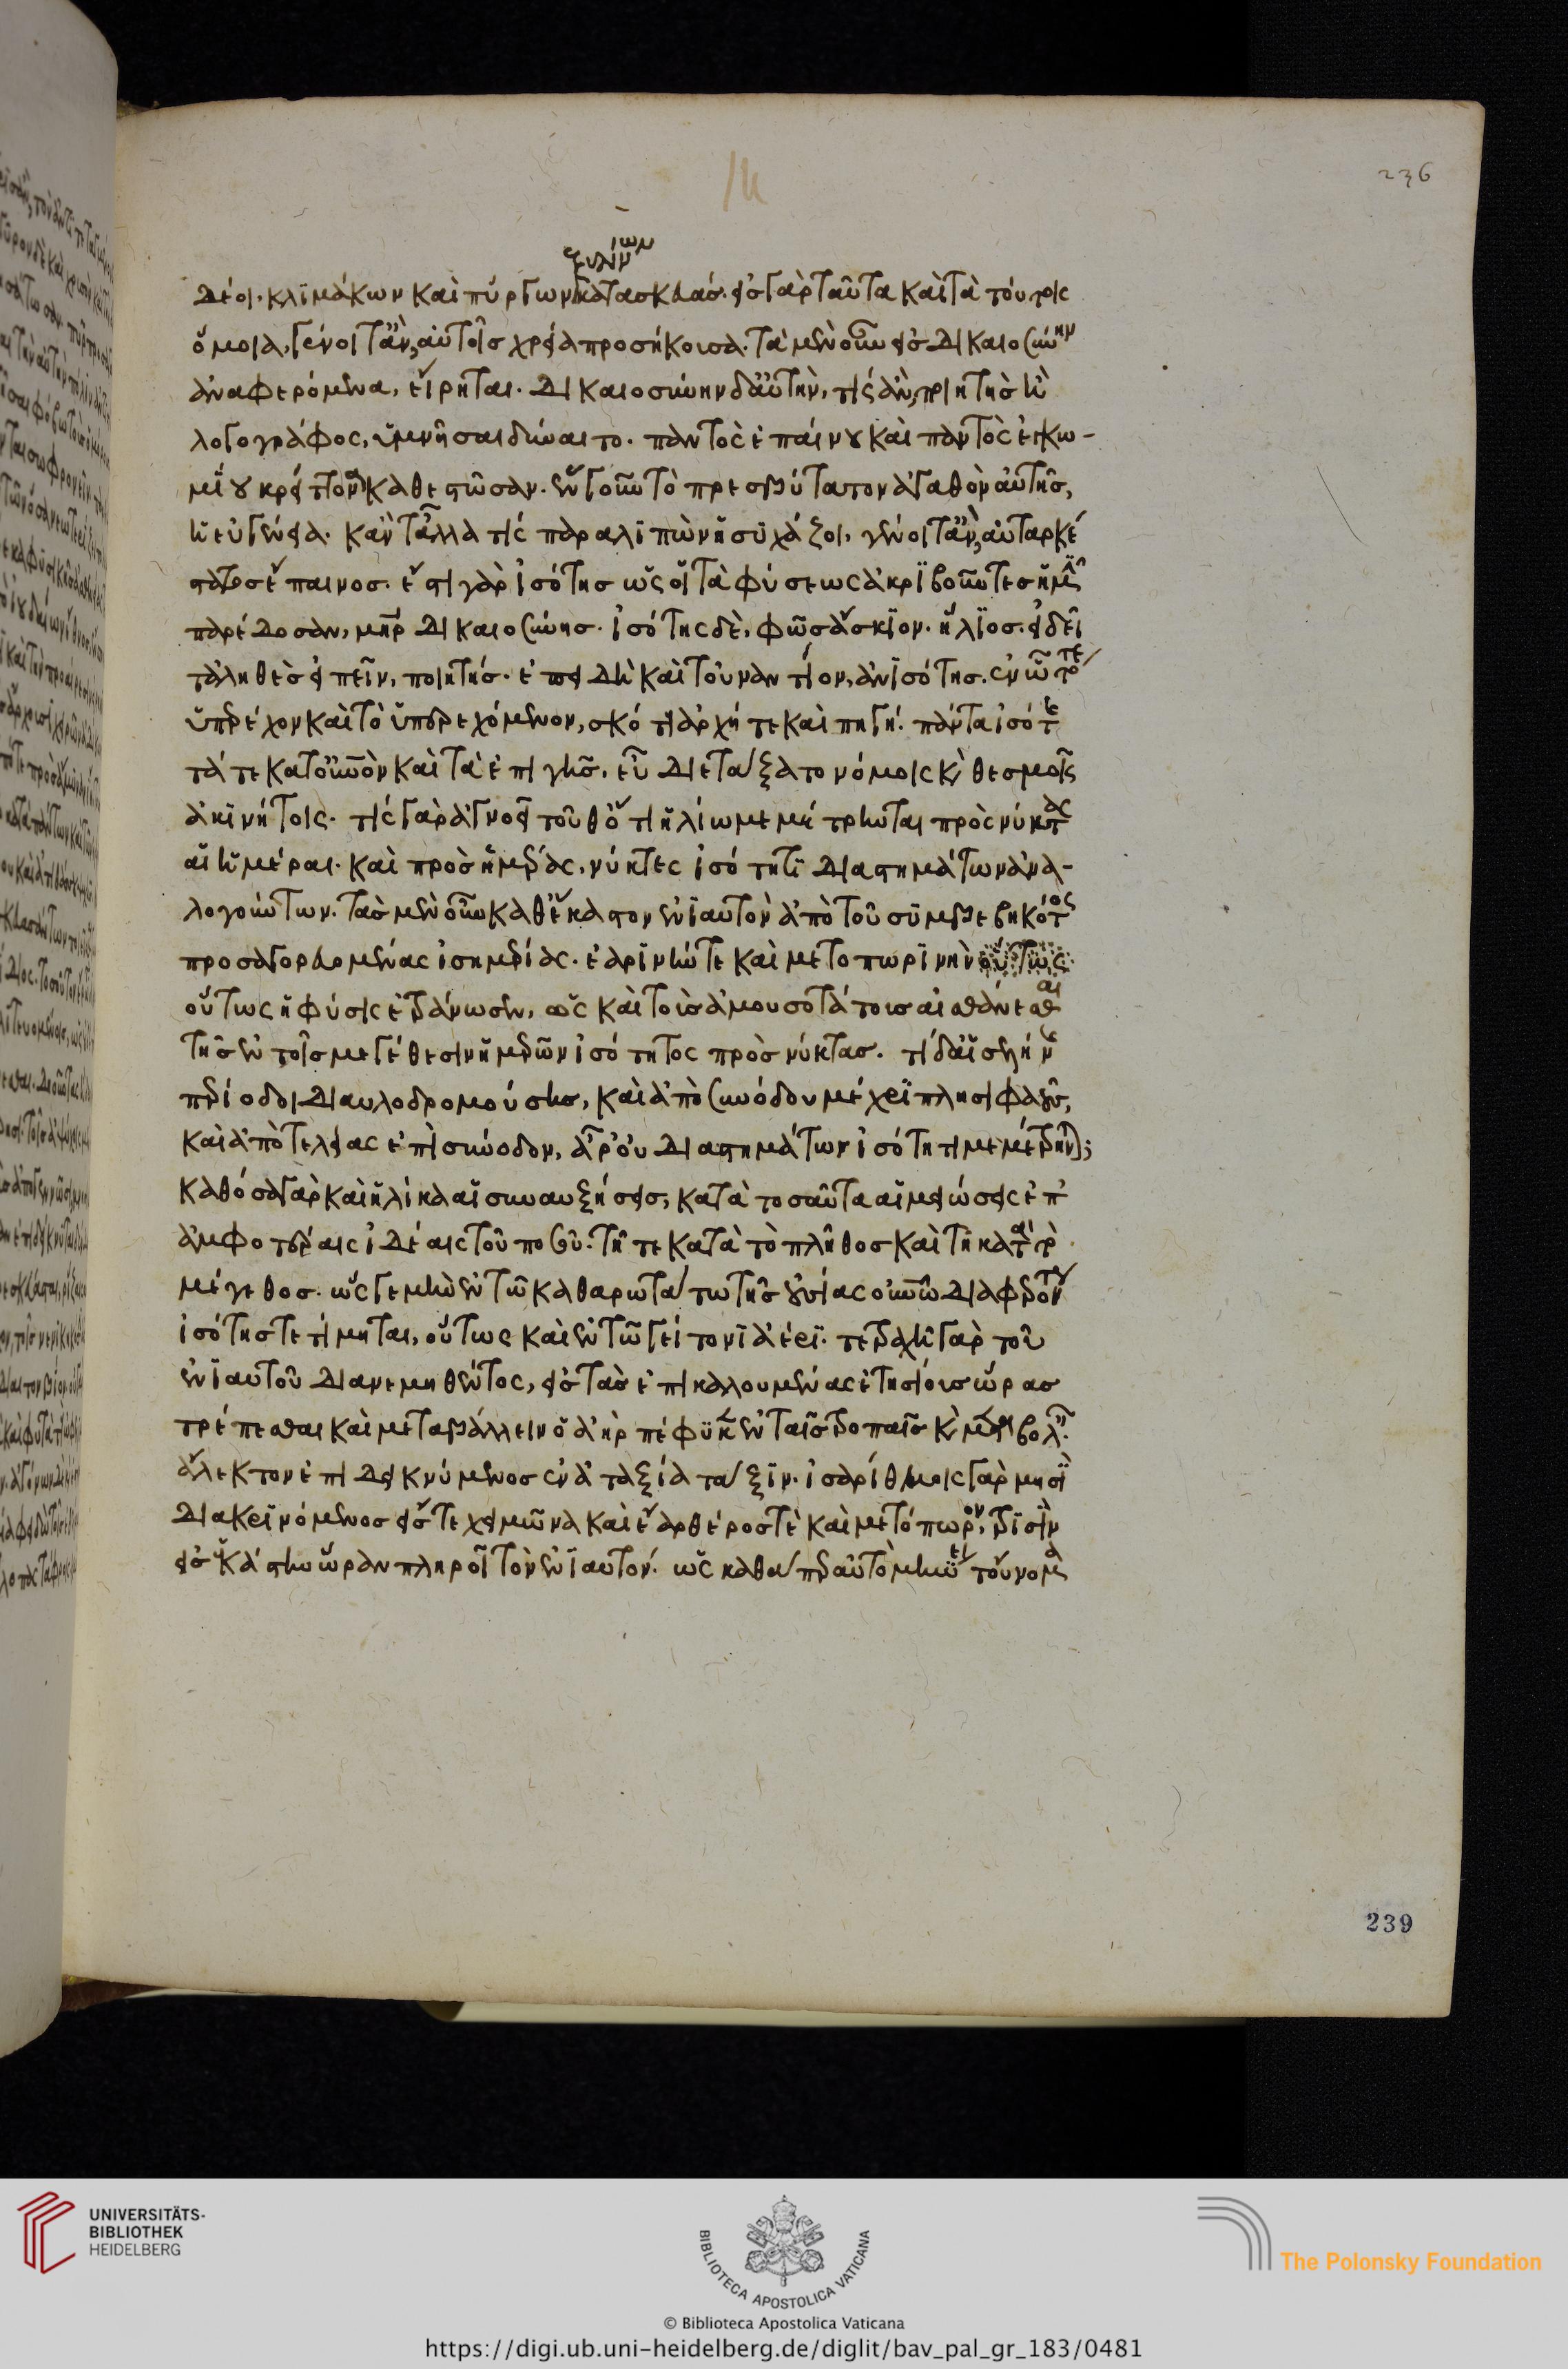 δέοι· κλϊμάκων καὶ πύργων ξυλίνων κατασκευάσ· εἰσ γὰρ ταῦτα καὶ τὰ τούτοις
ὅμοια, γένοιτ' ἂν αὐτοῖσ χρεία προσήκουσα. τὰ μὲν οὖν εἰσ δικαιοσύνην
ἀναφερόμενα, εἴρηται. δικαιοσύνην δ' αὐτὴν, τίς ἂν ποιητὴσ ἢ
λογογράφος, ὑμνῆσαι δύναιτο. παντὸς ἐπαίνου καὶ παντὸς ἐγκω-
μΐου κρείττον καθεστῶσαν. ἓν γοῦν τὸ πρεσβύτατον ἀγαθὸν αὐτῆσ,
ἡ εὐγένεια. κἂν τἄλλα τίς παραλϊπὼν ἡσϋχάζοι, γένοιτ' ἂν αὐταρκέ
στατοσ ἔπαινοσ. ἔστι γὰρ ἰσότησ ὡς οἱ τὰ φύσεως ἀκρϊβοῦντεσ ἡμῖν
παρέδοσαν, μηρ δικαιοσύνησ. ἰσότης δὲ, φῶσ ἄσκϊον. ἥλϊοσ. εἰ δεῖ
τἀληθὲσ εἰπεῖν, ποιητήσ. ἐπειδὴ καὶ τοὐναντίον, ἀνϊσότησ. ἐν ὧ τό τε
ὑπερέχον καὶ τὸ ὑπερεχόμενον, σκό τι ἀρχή τε καὶ πηγή. πάντα ἰσότ
τά τε κατ' οὐνὸν καὶ τὰ ἐπὶ γῆσ, εὖ διετάξατο νόμοις κ θεσμοῖς
ἀκϊνήτοις. τίς γὰρ ἀγνοεῖ τοῦθ' ὅτι ἡλίω μεμέτρηται πρὸς νύκτας
αἱ ἡμέραι. καὶ πρὸσ ἡμέρας, νύκτες ἰσότητϊ διαστημάτων ἀνα-
λογούντων. τὰσ μὲν οὖν καθ' ἕκαστον ἐνϊαυτὸν ἀπὸ τοῦ σϋμβεβηκότος
προσαγορευομένας ἰσημερίας. ἐαρϊνήν τε καὶ μετοπωρϊνὴν οὕτως
οὕτως ἡ φύσις ἐτράνωσεν, ὡς καὶ τοῖσ ἀμουσοτάτοισ αἰσθάνεσθαι
τῆσ ἐν τοῖσ μεγέθεσιν ἡμερῶν ἰσότητος πρὸσ νύκτασ. τί δ' αἱ σελήν
περίοδοι διαυλοδρομούσησ, καὶ ἀπὸ συνόδου μέχρϊ πλησιφαοῦς,
καὶ ἀπὸ τελείας ἐπὶ σύνοδον, ἆρ' οὐ διαστημάτων ἰσότητι μεμέτρηνται;
καθόσα γὰρ καὶ ἡλίκα αἱ συναυξήσεισ, κατὰ τοσαῦτα αἱ μειώσεις ἐπ'
ἀμφοτέραις ἰδέαις τοῦ ποσοῦ. τῆ τε κατὰ τὸ πλῆθοσ καὶ τῆ κατὰ τὸ
μέγεθοσ. ὡς γε μὴν ἐν τῶ καθαρωτάτω τῆσ οὐσίας οὐνῶ διαφερόντ
ἰσότησ τετίμηται, οὕτως καὶ ἐν τῶ γείτονϊ ἀέρϊ. τετραχῆ γὰρ τοῦ
ἐνϊαυτοῦ διανεμηθέντος, εἰσ τὰσ ἐπικαλουμένας ἐτησίουσ ὥρασ
τρέπεσθαι καὶ μεταβάλλειν ὁ ἀὴρ πέφϋκεν ἐν ταῖσ τροπαῖσ κ μεταβολ
ἄλεκτον ἐπιδεικνύμενοσ ἐν ἀταξία τάξϊν. ἰσαρίθμοις γὰρ μησϊ
διακρϊνόμενοσ εἴσ τε χειμῶνα καὶ ἔαρ θέροσ τὲ καὶ μετόπωρον, τρϊσὶν
εἰσ ἑκάστην ὥραν πληροῖ τὸν ἐνϊαυτόν. ὡς καθάπερ αὐτὸ μηνύει τοὔνομα
236
239
UNIVERSITÄTS-
BIBLIOTHEK
HEIDELBERG
BIBLIOTECA APOSTOLICA VATICANA
The Polonsky Foundation
© Biblioteca Apostolica Vaticana
https://digi.ub.uni-heidelberg.de/diglit/bav_pal_gr_183/0481